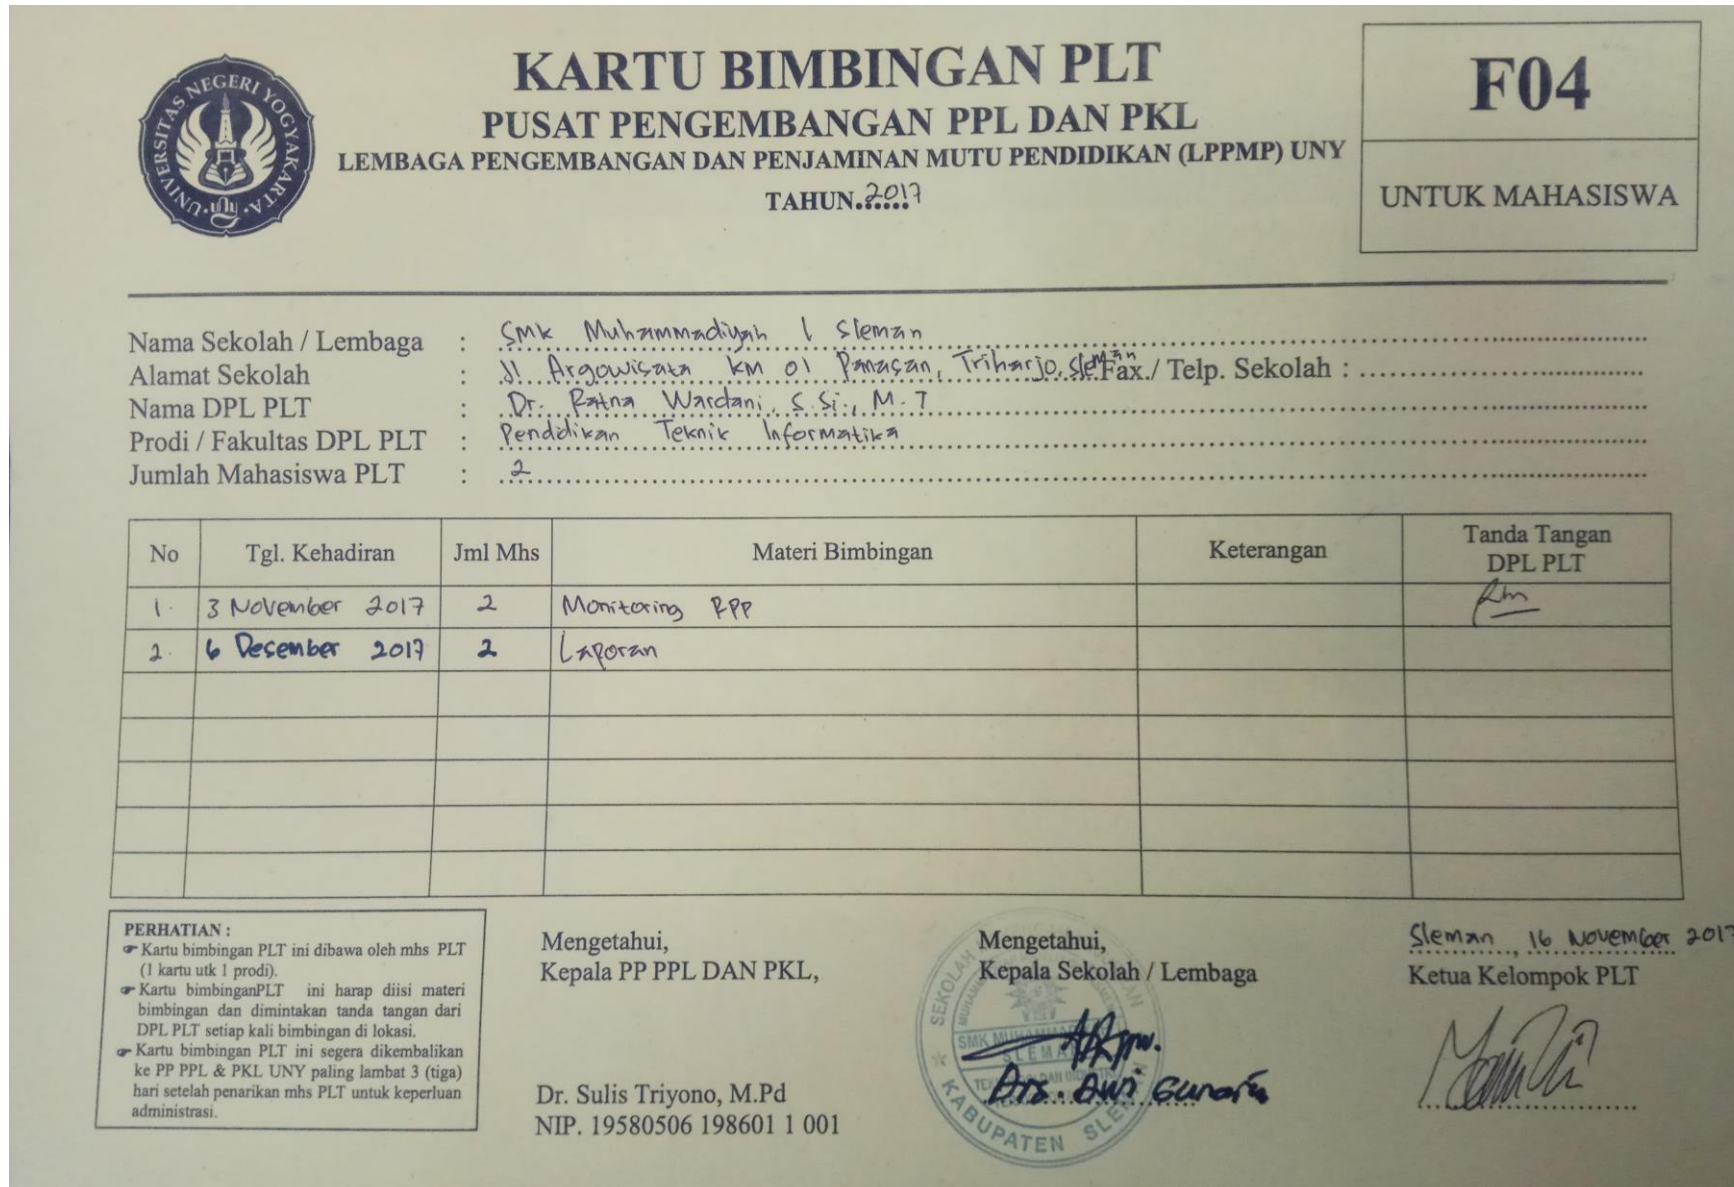 UNIVERSITAS NEGERI YOGYAKARTA
KARTU BIMBINGAN PLT
PUSAT PENGEMBANGAN PPL DAN PKL
LEMBAGA PENGEMBANGAN DAN PENJAMINAN MUTU PENDIDIKAN (LPPMP) UNY
TAHUN.2017
F04
UNTUK MAHASISWA
Nama Sekolah / Lembaga : SMK Muhammadiyah 1 Sleman
Alamat Sekolah : Jl Argowisata km 01 Panasan, Triharjo, Sleman Fax./ Telp. Sekolah :
Nama DPL PLT : Dr. Ratna Wardani, S.Si., M.T
Prodi / Fakultas DPL PLT : Pendidikan Teknik Informatika
Jumlah Mahasiswa PLT : 2
No Tgl. Kehadiran Jml Mhs Materi Bimbingan Keterangan Tanda Tangan DPL PLT
1. 3 November 2017 2 Monitoring RPP
2. 6 Desember 2017 2 Laporan
PERHATIAN :
☞ Kartu bimbingan PLT ini dibawa oleh mhs PLT
(1 kartu utk 1 prodi).
☞ Kartu bimbinganPLT ini harap diisi materi
bimbingan dan dimintakan tanda tangan dari
DPL PLT setiap kali bimbingan di lokasi.
☞ Kartu bimbingan PLT ini segera dikembalikan
ke PP PPL & PKL UNY paling lambat 3 (tiga)
hari setelah penarikan mhs PLT untuk keperluan
administrasi.
Mengetahui,
Kepala PP PPL DAN PKL,
Dr. Sulis Triyono, M.Pd
NIP. 19580506 198601 1 001
Mengetahui,
Kepala Sekolah / Lembaga
SEKOLAH
SMK MUHAMMAD
SLEMAN
KABUPATEN SLEMAN
Drs. Dwi
Sleman, 16 November 2017
Ketua Kelompok PLT